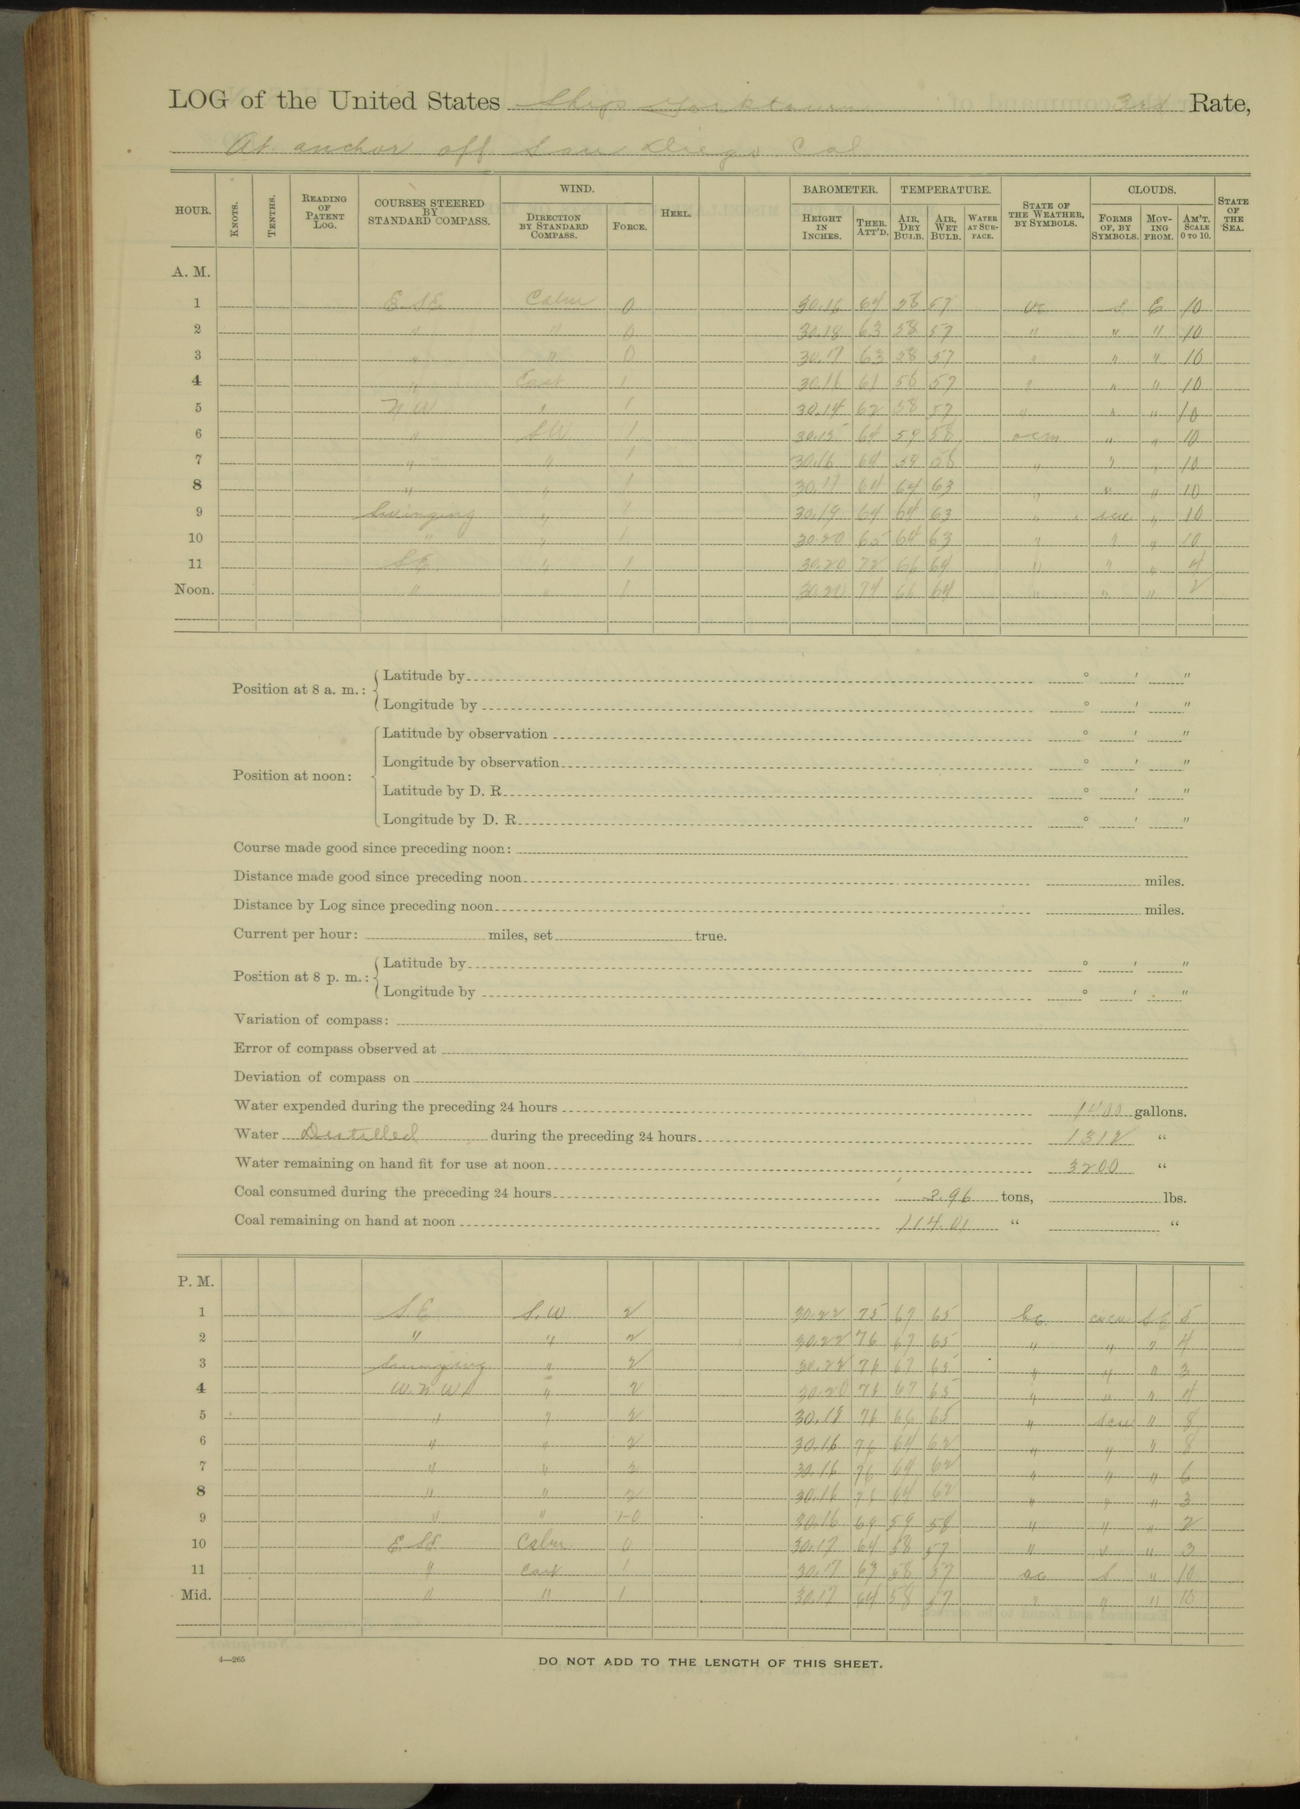 LOG of the United States Ships Yorktown 3rd Rate,
At anchor off San Diego Cal
HOUR. KNOTS. TENTHS. READING OF PATENT LOG. COURSES STEERED BY STANDARD COMPASS. WIND. DIRECTION BY STANDARD COMPASS. FORCE. HEEL. BAROMETER. HEIGHT IN INCHES. THER. ATT'D. TEMPERATURE. AIR, DRY BULB. AIR, WET BULB. WATER AT SURFACE. STATE OF THE WEATHER, BY SYMBOLS. CLOUDS. FORMS OF, BY SYMBOLS. MOVING FROM. AM'T. SCALE 0 TO 10. STATE OF THE SEA.
A. M.
1 E SE Calm 0 30.16 64 58 57 oc S. E 10
2 " " 0 30.18 63 58 57 " " " 10
3 " " 0 30.17 63 58 57 " " " 10
4 " East 1 30.16 61 58 57 " " " 10
5 N W " 1 30.14 62 58 57 " " " 10
6 " SW 1 30.15 64 59 58 ocm " " 10
7 " " 1 30.16 64 59 58 " " " 10
8 " " 1 30.17 64 64 63 " " " 10
9 Swinging " 1 30.19 64 64 63 " scu " 10
10 " " 1 30.20 65 64 63 " " " 10
11 SE " 1 30.20 72 66 64 " " " 4
Noon. " " 1 30.20 74 66 64 " " " 2
Position at 8 a. m.: Latitude by ° ' "
Longitude by ° ' "
Position at noon: Latitude by observation ° ' "
Longitude by observation ° ' "
Latitude by D. R. ° ' "
Longitude by D. R. ° ' "
Course made good since preceding noon:
Distance made good since preceding noon miles.
Distance by Log since preceding noon miles.
Current per hour: miles, set true.
Position at 8 p. m.: Latitude by ° ' "
Longitude by ° ' "
Variation of compass:
Error of compass observed at
Deviation of compass on
Water expended during the preceding 24 hours 1400 gallons.
Water Distilled during the preceding 24 hours 1312 "
Water remaining on hand fit for use at noon 3200 "
Coal consumed during the preceding 24 hours 2.96 tons, lbs.
Coal remaining on hand at noon 114.01 " "
P. M.
1 S.E S.W 2 30.22 75 67 65 bc. cicu S.E 5
2 " " 2 30.22 76 67 65 " " " 4
3 Swinging " 2 30.22 76 67 65 " " " 3
4 W.N.W. " 2 30.20 76 67 65 " " " 4
5 " " 2 30.18 76 66 65 " scu " 8
6 " " 2 30.16 76 64 62 " " " 8
7 " " 2 30.16 76 64 62 " " " 6
8 " " 2 30.16 76 64 62 " " " 3
9 " " 1-0 30.16 69 59 58 " " " 2
10 E SE Calm 0 30.17 64 58 57 " " " 3
11 " East 1 30.17 63 58 57 oc S " 10
Mid. " " 1 30.17 64 58 57 " " " 10
4—265
DO NOT ADD TO THE LENGTH OF THIS SHEET.